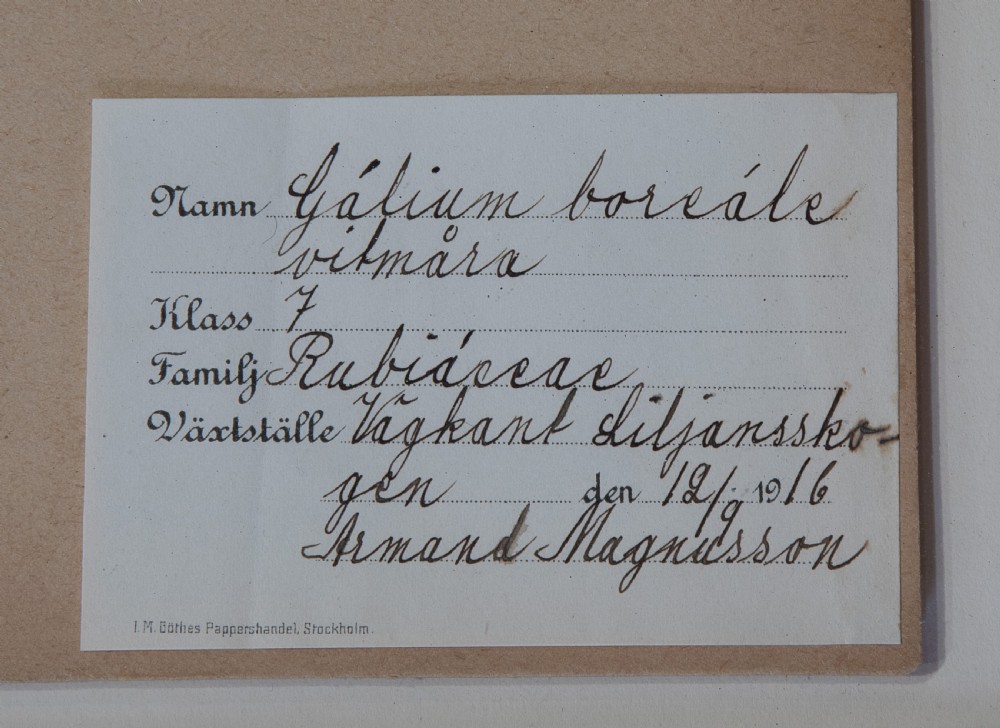 Namn Gálium boreále
vitmåra
Klass 7
Familj Rubiáceae
Växtställe Vägkant Liljanssko-
gen den 12/9 1916
Armand Magnusson
I. M. Göthes Pappershandel, Stockholm.